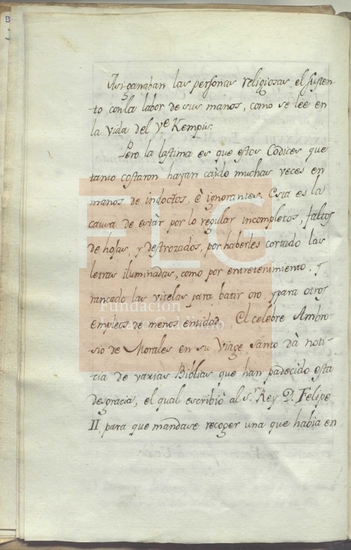 Asi ganaban las personas religiosas el susten
to con la labor de sus manos, como se lee en
la Vida del Ve. Kempis.
Pero la lastima es que estos Códices que
tanto costaron hayan caído muchas veces en
manos de indoctos, è ignorantes. Esta es la
causa de estàr por lo regular incompletos, faltos
de hojas, y destrozados, por haberles cortado las
letras iluminadas, como por entretenimiento, y
rancado las vitelas para batir oro, y para otros
empleos de menos entidad. El celebre Ambro
sio de Morales en su Viage Santo dà noti
cia de varias Biblias que han padecido esta
desgracia, el qual escribiò al Sr. Rey D. Felipe
II. para que mandase recoger una que habia en
FLG
Fundación